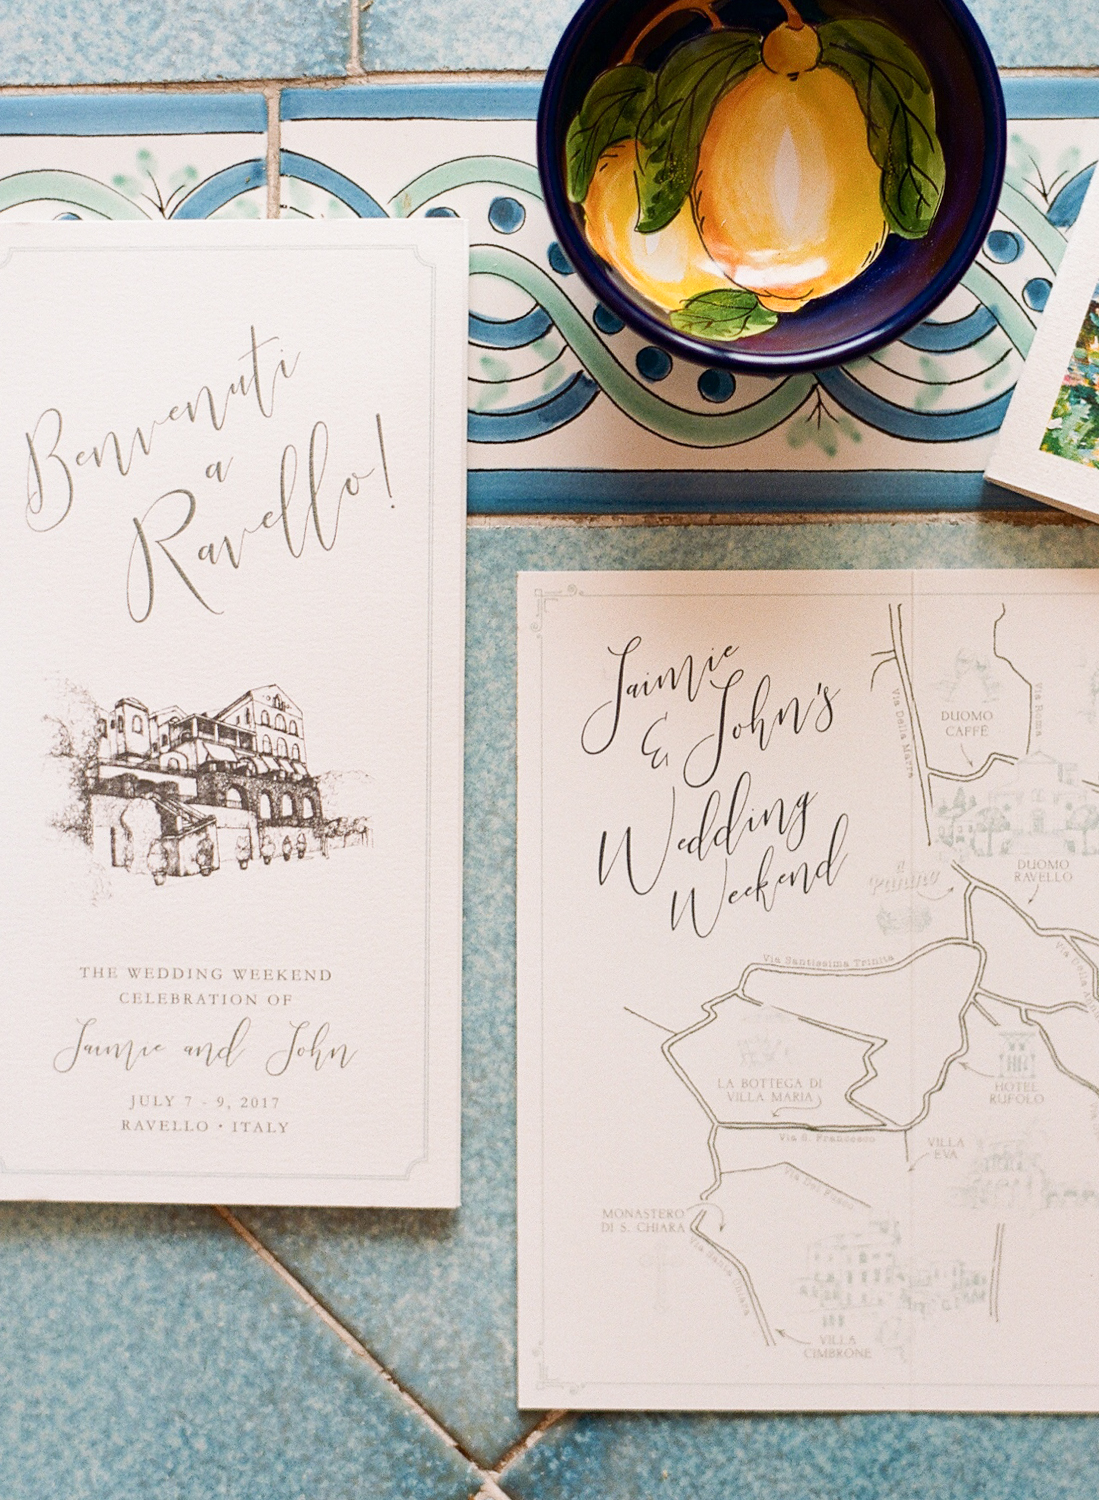 Benvenuti
a
Ravello!
THE WEDDING WEEKEND
CELEBRATION OF
Jaimie and John
JULY 7 - 9, 2017
RAVELLO • ITALY
Jaimie
& John's
Wedding
Weekend
Via Della Marra
Via Roma
DUOMO
CAFFÈ
DUOMO
RAVELLO
il
Panino
Via Santissima Trinita
Via Della
LA BOTTEGA DI
VILLA MARIA
HOTEL
RUFOLO
Via S. Francesco
VILLA
EVA
Via Del
MONASTERO
DI S. CHIARA
Via Santa Chiara
VILLA
CIMBRONE